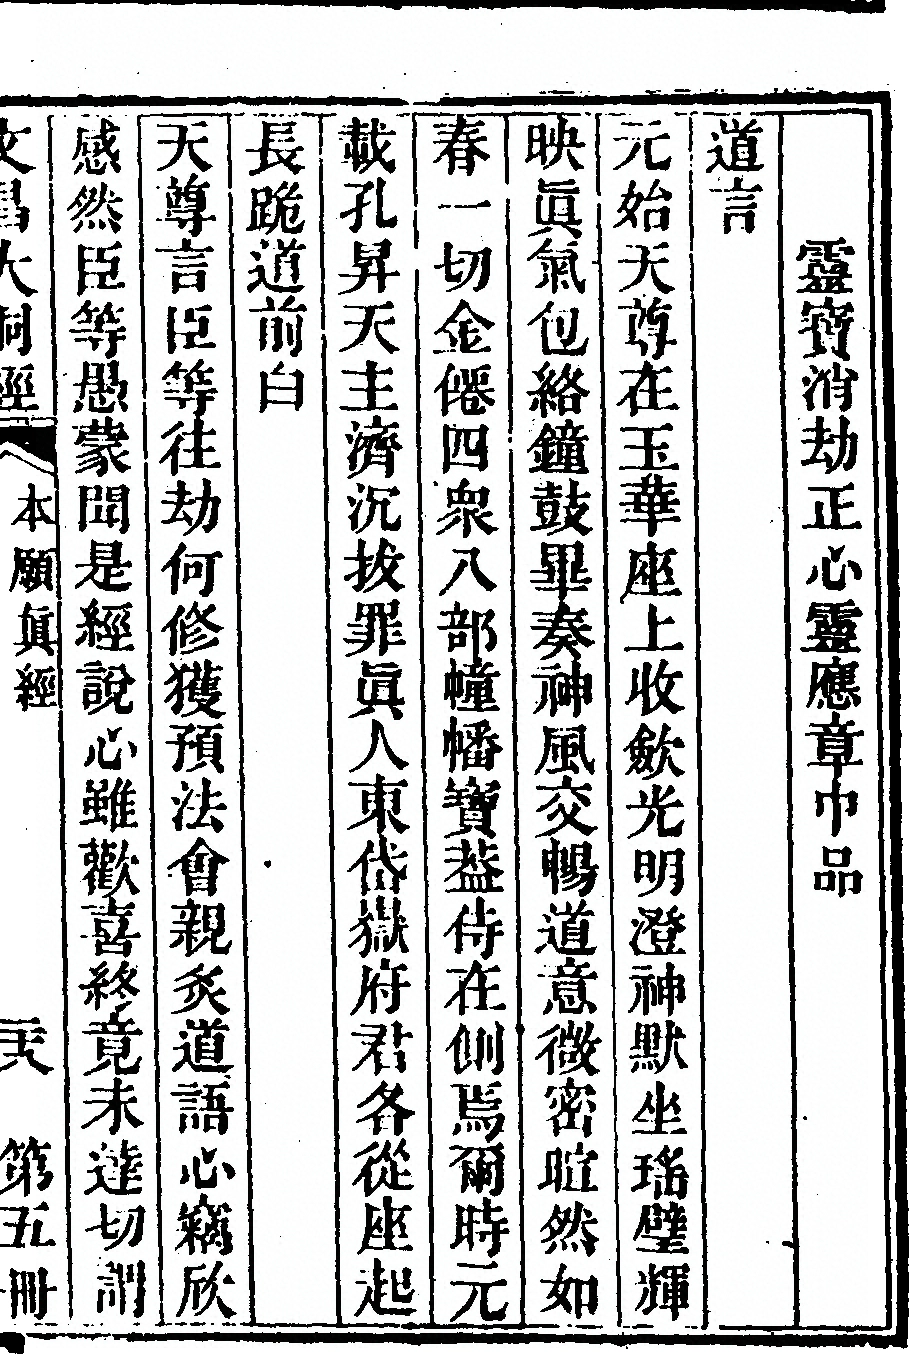 靈寶消劫正心靈應章巾品
道言
元始天尊在玉華座上收歛光明澄神默坐瑤璧輝
映眞氣包絡鐘鼓畢奏神風交暢道意微密暄然如
春一切金僊四衆八部幢幡寶葢侍在側焉爾時元
載孔昇天主濟沉拔罪眞人東岱嶽府君各從座起
長跪道前白
天尊言臣等往劫何修獲預法會親炙道語心竊欣
感然臣等愚蒙聞是經說心雖歡喜終竟未達切謂
文昌大洞經 本願眞經 天 第五冊